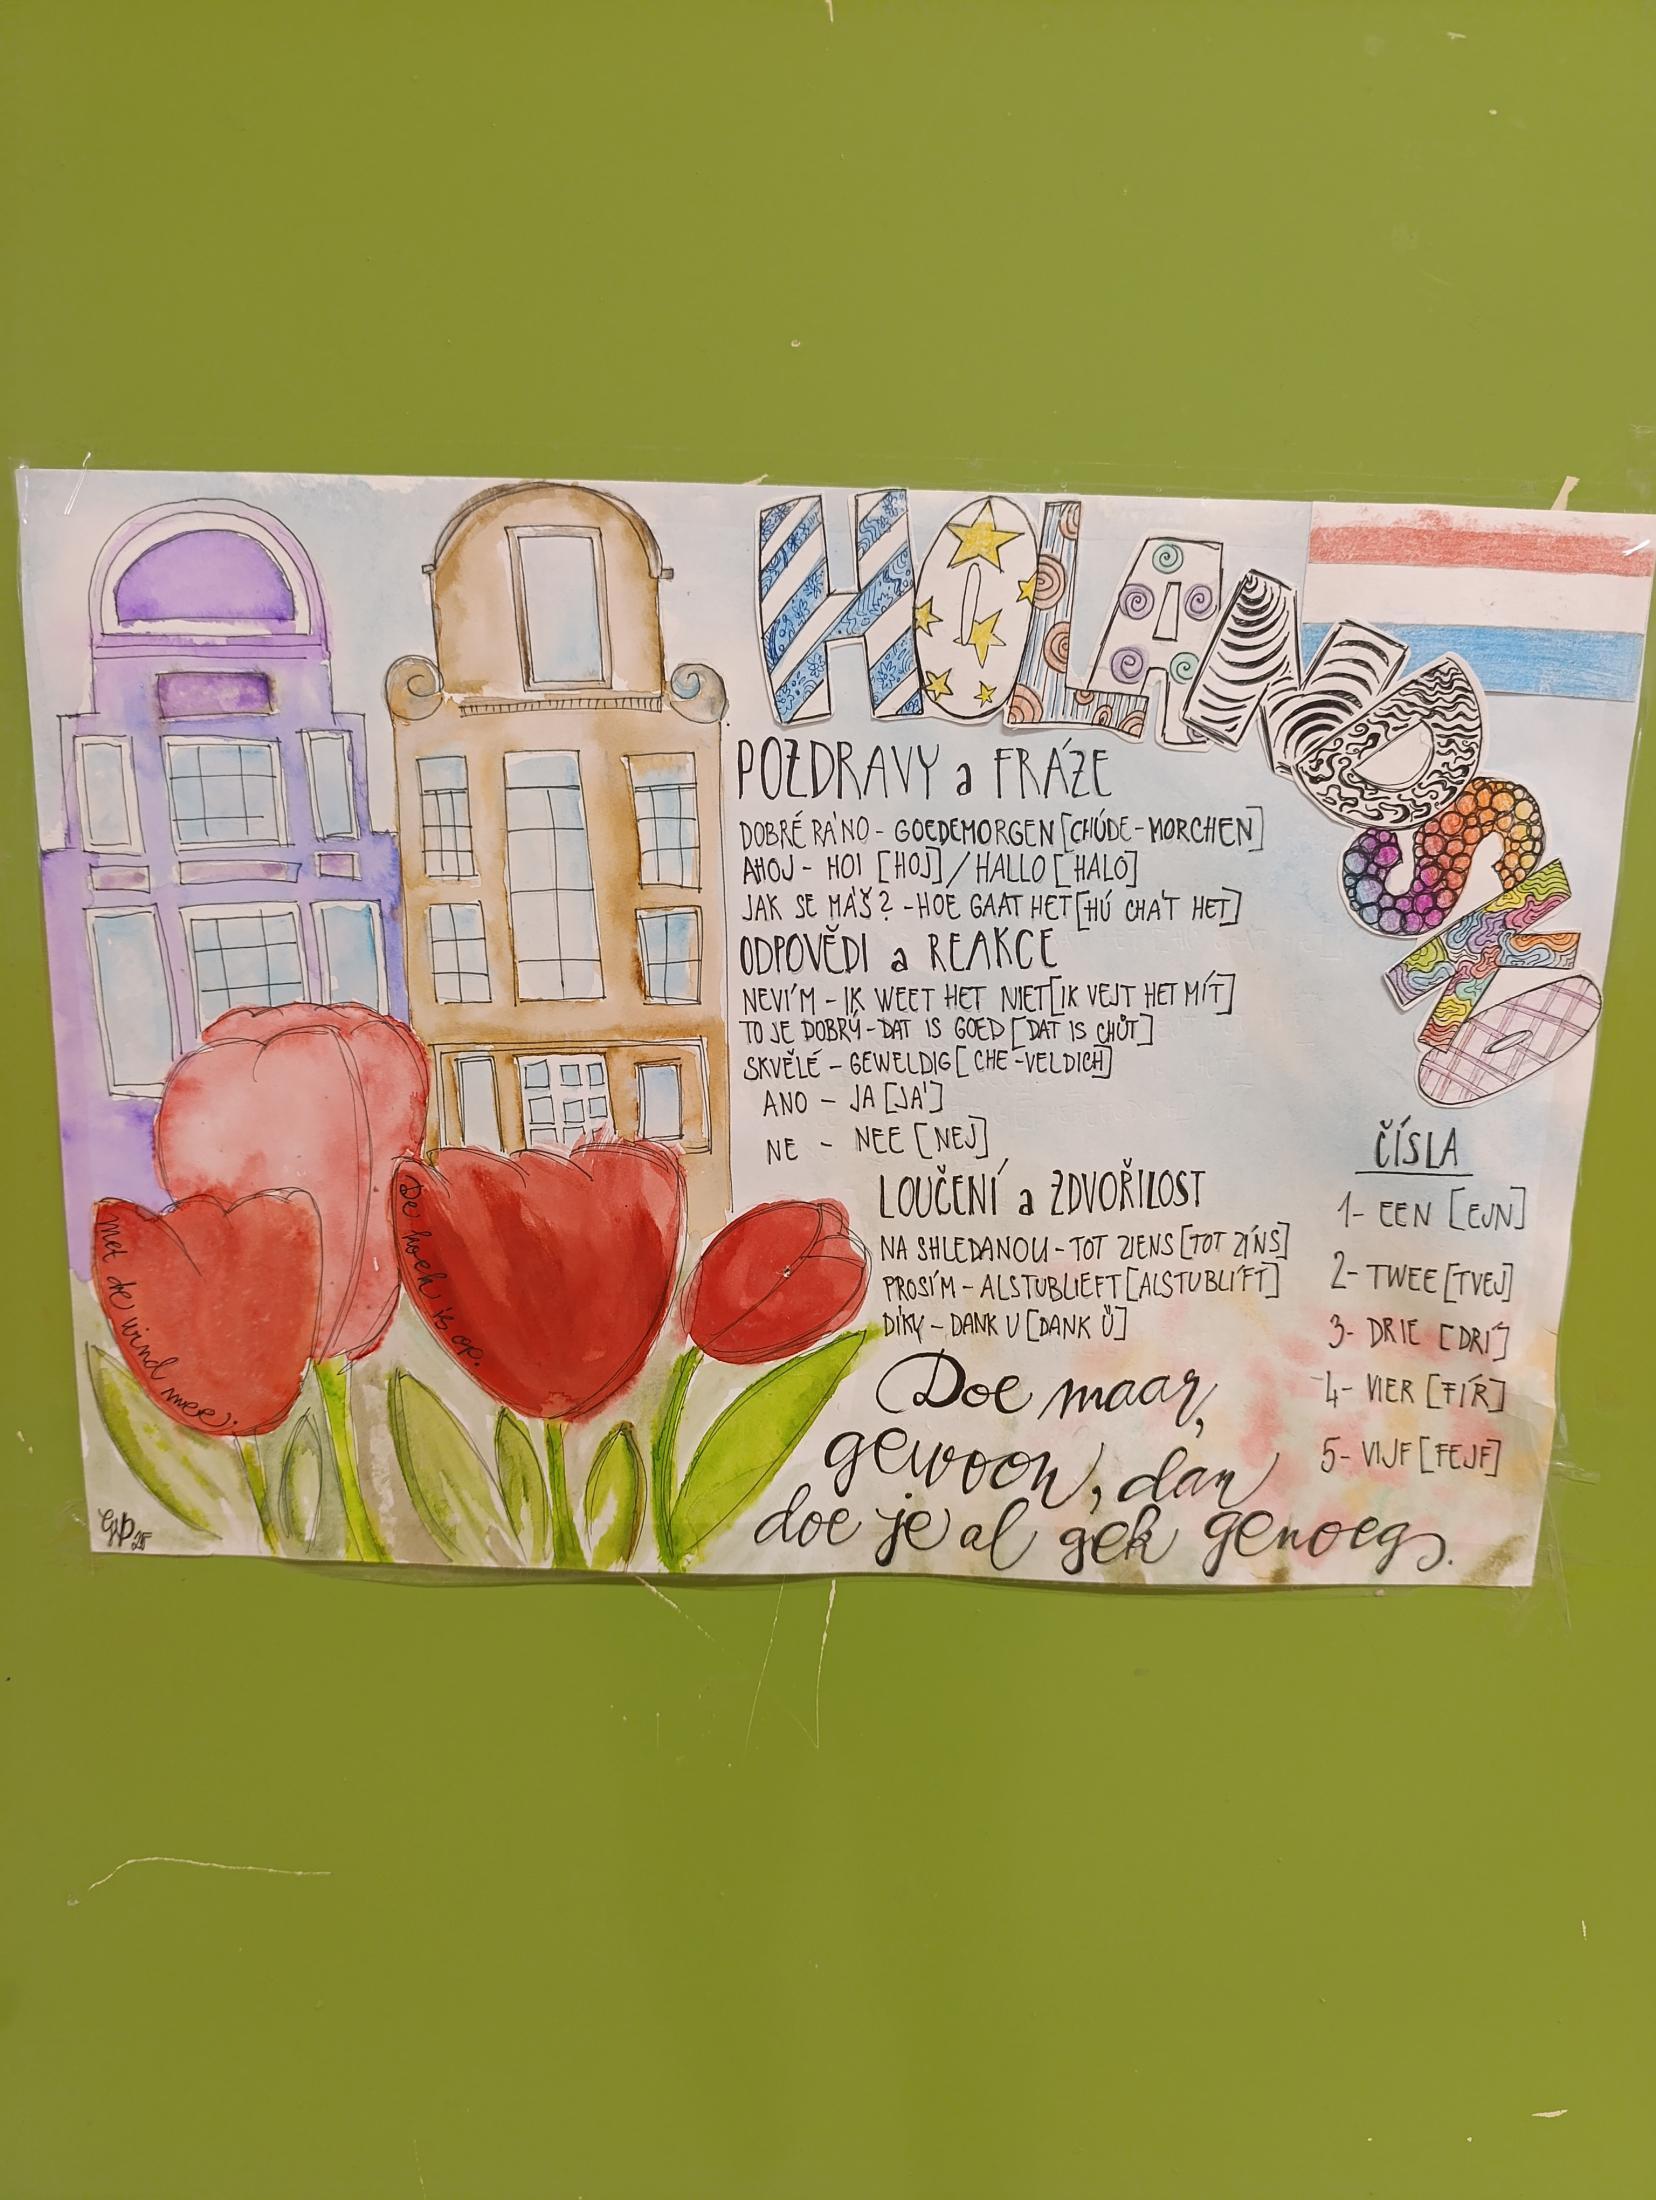 HOLANDSKO
POZDRAVY a FRÁZE
DOBRÉ RÁNO - GOEDEMORGEN [CHÚDE-MORCHEN]
AHOJ - HOI [HOJ] / HALLO [HALO]
JAK SE MÁŠ? - HOE GAAT HET [HÚ CHÁT HET]
ODPOVĚDI a REAKCE
NEVÍM - IK WEET HET NIET [IK VEJT HET MÍT]
TO JE DOBRÝ - DAT IS GOED [DAT IS CHŮT]
SKVĚLÉ - GEWELDIG [CHE-VELDICH]
ANO - JA [JÁ]
NE - NEE [NEJ]
LOUČENÍ a ZDVOŘILOST
NA SHLEDANOU - TOT ZIENS [TOT ZÍNS]
PROSÍM - ALSTUBLIEFT [ALSTUBLÍFT]
DÍKY - DANK U [DANK Ü]
ČÍSLA
1- EEN [EJN]
2- TWEE [TVEJ]
3- DRIE [DRÍ]
4- VIER [FÍR]
5- VIJF [FEJF]
Doe maar,
gewoon, dan
doe je al gek genoeg.
Met de wind mee.
De koek is op.